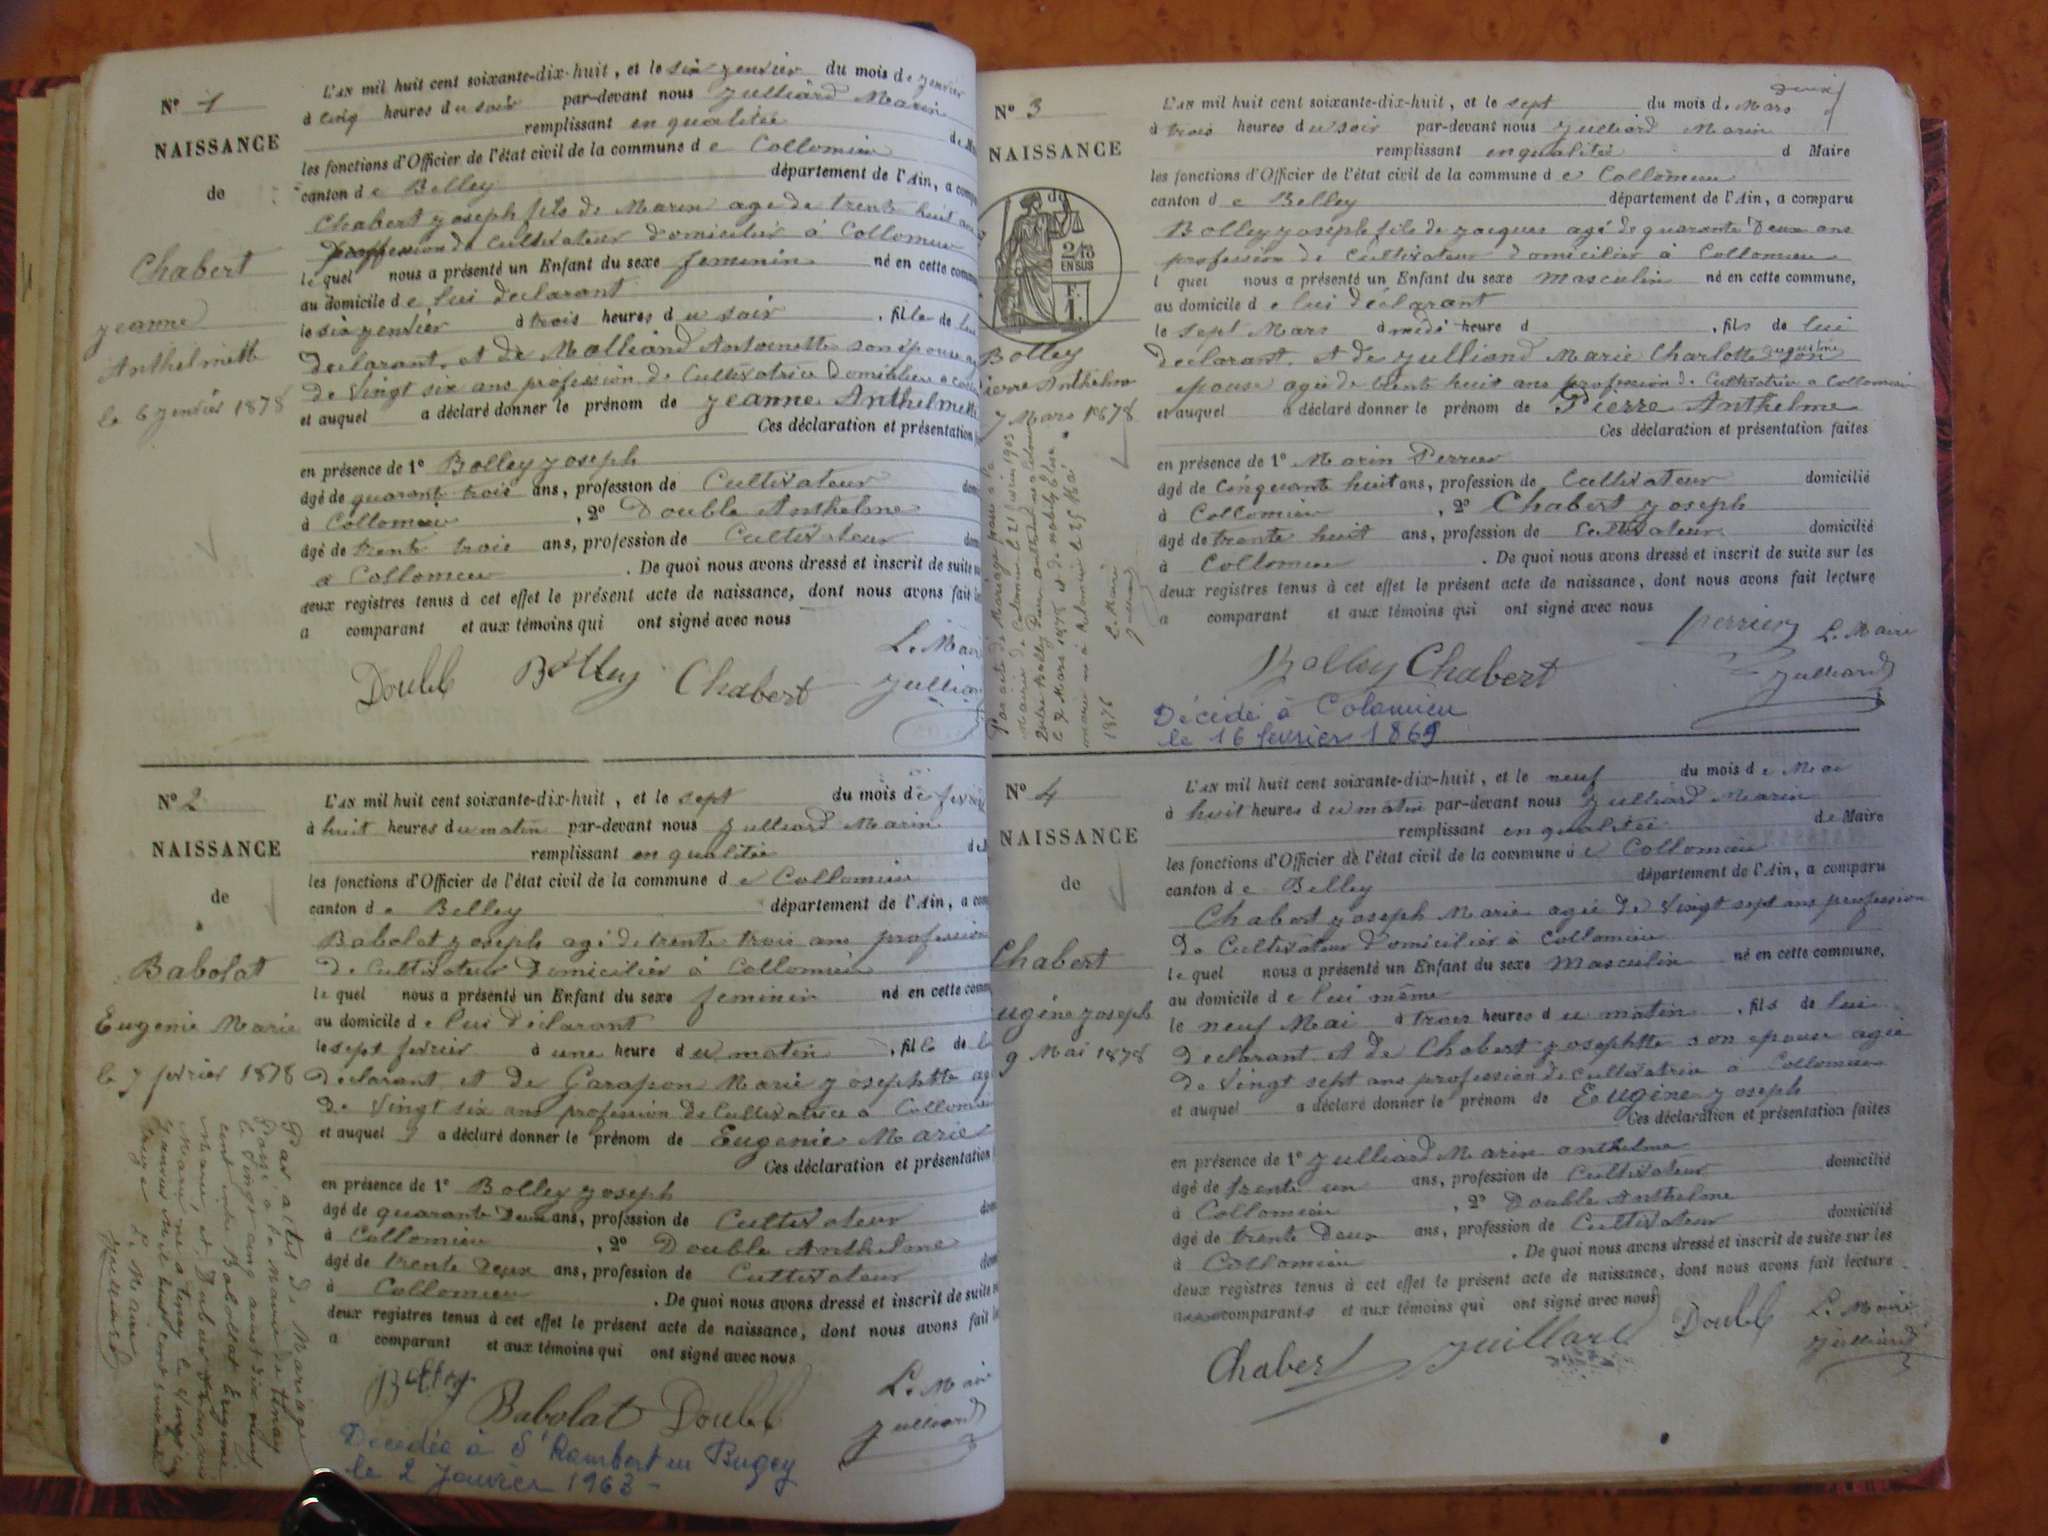 N° 1
NAISSANCE
de
Chabert
Jeanne
Anthelmette
le 6 Jenvier 1878
L'AN mil huit cent soixante-dix-huit, et le six Jenvier du mois de Jenvier
à cinq heures du soir par-devant nous Julliard Marin
remplissant en qualitée de M
les fonctions d'Officier de l'état civil de la commune de Collomieu
canton de Belley département de l'Ain, a comp
Chabert Joseph fils de Marin age de trente huit ans
proffession de Cultivateur domicilier à Collomieu
le quel nous a présenté un Enfant du sexe feminin né en cette comm
au domicile de lui declarant
le six Jenvier à trois heures du soir, fille de lui
declarant, et de Molliand Antoinette son épouse ag
de Vingt six ans profession de Cultivatrice Domiciliee a Coll
et auquel a déclaré donner le prénom de Jeanne Anthelmette
Ces déclaration et présentation
en présence de 1° Bolley Joseph
âgé de quarante trois ans, profession de Cultivateur dom
à Collomieu, 2° Double Anthelme
âgé de trente trois ans, profession de Cultivateur dom
à Collomieu. De quoi nous avons dressé et inscrit de suite su
deux registres tenus à cet effet le présent acte de naissance, dont nous avons fait le
a comparant et aux témoins qui ont signé avec nous
Le Mair
Double Bolley Chabert Julliar
N° 2
NAISSANCE
de
Babolat
Eugenie Marie
le 7 fevrier 1878
L'AN mil huit cent soixante-dix-huit, et le sept du mois de fevri
à huit heures du matin par-devant nous Julliard Marin
remplissant en qualitée de
les fonctions d'Officier de l'état civil de la commune de Collomieu
canton de Belley département de l'Ain, a com
Babolat Joseph agé de trente trois ans profession
de Cultivateur Domicilier à Collomieu
le quel nous a présenté un Enfant du sexe feminin né en cette comm
au domicile de lui déclarant
le sept fevrier à une heure du matin, fille de l
declarant et de Garapon Marie Josephtte ag
de Vingt six ans profession de Cultivatrice a Collomieu
et auquel a déclaré donner le prénom de Eugenie Marie
Ces déclaration et présentation
en présence de 1° Bolley Joseph
âgé de quarante Deux ans, profession de Cultivateur dom
à Collomieu, 2° Double Anthelme
âgé de trente Deux ans, profession de Cultivateur dom
à Collomieu. De quoi nous avons dressé et inscrit de suite su
deux registres tenus à cet effet le présent acte de naissance, dont nous avons fait le
a comparant et aux témoins qui ont signé avec nous
Bolley Le Mair
Babolat Double Julliard
Décédée à St Rambert en Bugey
le 2 Janvier 1963 -
Par actes de Mariage
Passé à la Mairie de tenay
le Vingt cinq aout dix neuf
cent entre Babolat Eugenie
Marie, et
Marie né a tenay le Vingt
Janvier mil huit cent soixante
Le Maire
Julliard
deux
N° 3
NAISSANCE
de
2/10 EN SUS
F. 1.
Bolley
ierre Anthelme
7 Mars 1878
L'AN mil huit cent soixante-dix-huit, et le sept du mois de Mars
à trois heures du soir par-devant nous Julliard Marin
remplissant en qualitée d Maire
les fonctions d'Officier de l'état civil de la commune de Collomieu
canton de Belley département de l'Ain, a comparu
Bolley Joseph fils de Jacques agé de quarante Deux ans
profession de Cultivateur domicilier à Collomieu
l quel nous a présenté un Enfant du sexe Masculin né en cette commune,
au domicile de lui déclarant
le sept Mars à midi heure d, fils de lui
declarant, et de Julliand Marie Charlotte augustine son
epouse agée de trente huit ans profession de Cultivatrice a Collomieu
et auquel a déclaré donner le prénom de Pierre Anthelme
Ces déclaration et présentation faites
en présence de 1° Marin Perrier
âgé de Cinquante huit ans, profession de Cultivateur domicilié
à Collomieu, 2° Chabert Joseph
âgé de trente huit ans, profession de Cultivateur domicilié
à Collomieu. De quoi nous avons dressé et inscrit de suite sur les
deux registres tenus à cet effet le présent acte de naissance, dont nous avons fait lecture
a comparant et aux témoins qui ont signé avec nous
perrier Le Maire
Bolley Chabert Julliard
Décédé à Colomieu
le 16 fevrier 1869
Par acte de Mariage passé à la
Mairie de Colomieu le 21 1903
Entre Bolley Pierre anthelme né à Colomieu
le 7 Mars 1878 et de
né à le 25 Mai
1876 Le Maire
Julliard
N° 4
NAISSANCE
de
Chabert
ugéne Joseph
9 Mai 1878
L'AN mil huit cent soixante-dix-huit, et le neuf du mois de Mai
à huit heures du matin par-devant nous Julliard Marin
remplissant en qualitée de Maire
les fonctions d'Officier de l'état civil de la commune de Collomieu
canton de Belley département de l'Ain, a comparu
Chabert Joseph Marie agée de Vingt sept ans profession
de Cultivateur Domicilier à Collomieu
le quel nous a présenté un Enfant du sexe Masculin né en cette commune,
au domicile de lui même
le neuf Mai à trois heures du matin, fils de lui
declarant et de Chabert Josephtte son epouse agée
de Vingt sept ans profession de cultivatrice a Collomieu
et auquel a déclaré donner le prénom de Eugène Joseph
Ces déclaration et présentation faites
en présence de 1° Julliard Marin anthelme
âgé de trente un ans, profession de Cultivateur domicilié
à Collomieu, 2° Double Anthelme
âgé de trente Deux ans, profession de Cultivateur domicilié
à Collomieu. De quoi nous avons dressé et inscrit de suite sur les
deux registres tenus à cet effet le présent acte de naissance, dont nous avons fait lecture
a comparants et aux témoins qui ont signé avec nous
Chabert Juillard Double Le Maire
Julliard